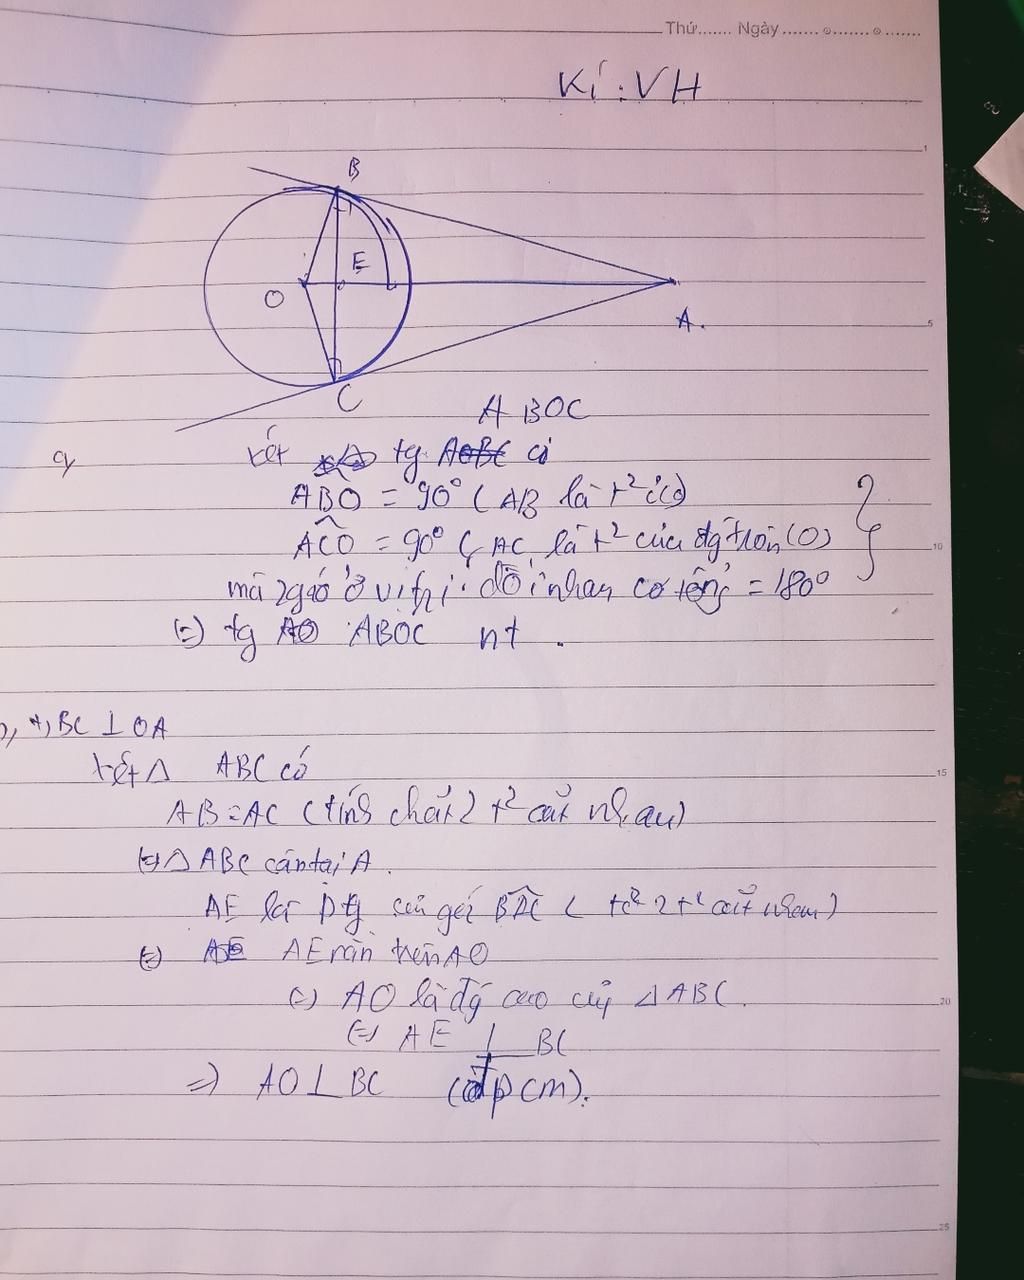 Thứ....... Ngày.......
Kí : VH
B
E
O
A.
C
A BOC
a, xét tg AOBC có
ABO = 90° ( AB là t² c(O)
ACO = 90° ( AC là t² của đg tròn (O)
mà 2 góc ở vị trí đối nhau có tổng = 180°
=> tg AO ABOC nt .
b, *, BC ⊥ OA
xét Δ ABC có
AB = AC ( tính chất 2 t² cắt nhau)
=> Δ ABC cân tại A .
AE là p tg của góc BAC ( tc² 2 t² cắt nhau)
=> AE AE nằm trên AO
=> AO là đg cao của Δ ABC.
=> AE ⊥ BC
=> AO ⊥ BC (đpcm).
1
5
10
15
20
25